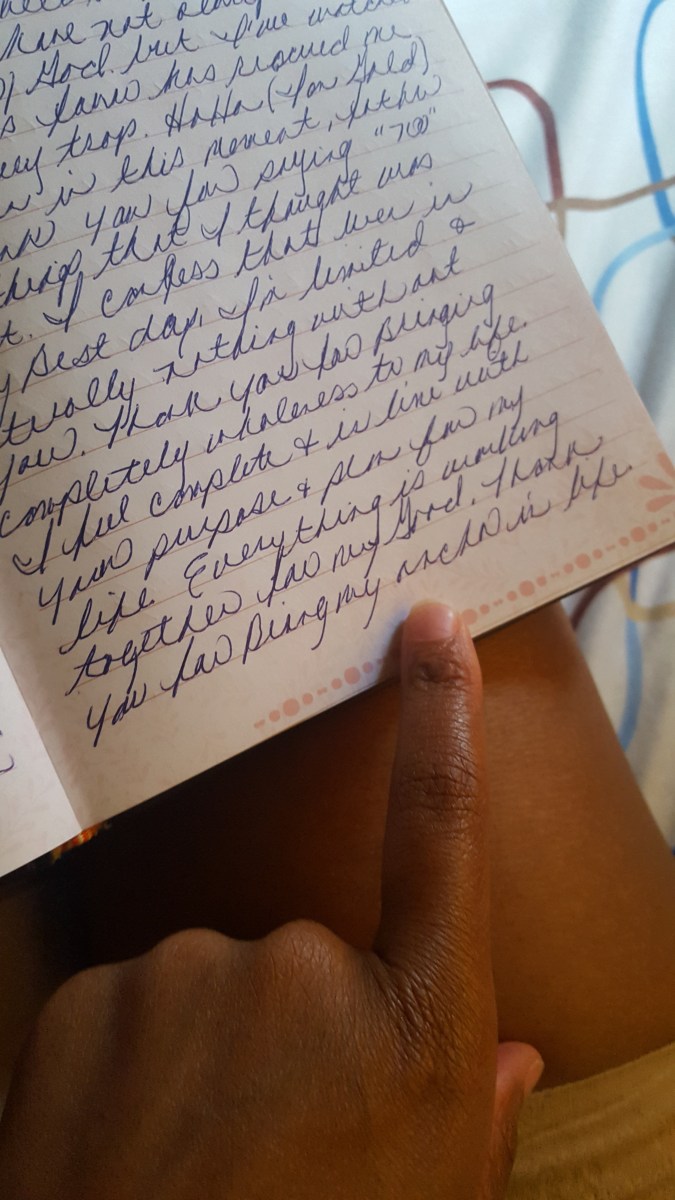 have not always
of God. but I've watched
favor has rescued me
trap. HaHa (I'm Glad)
in this moment, father
you for saying "no"
things that I thought was
I confess that even in
best day, I'm limited &
nothing without
you. Thank you for Bringing
completely wholeness to my life.
I feel complete & in line with
your purpose & plan for my
life. Everything is working
together for my Good. Thank
you for Being my anchor in life.